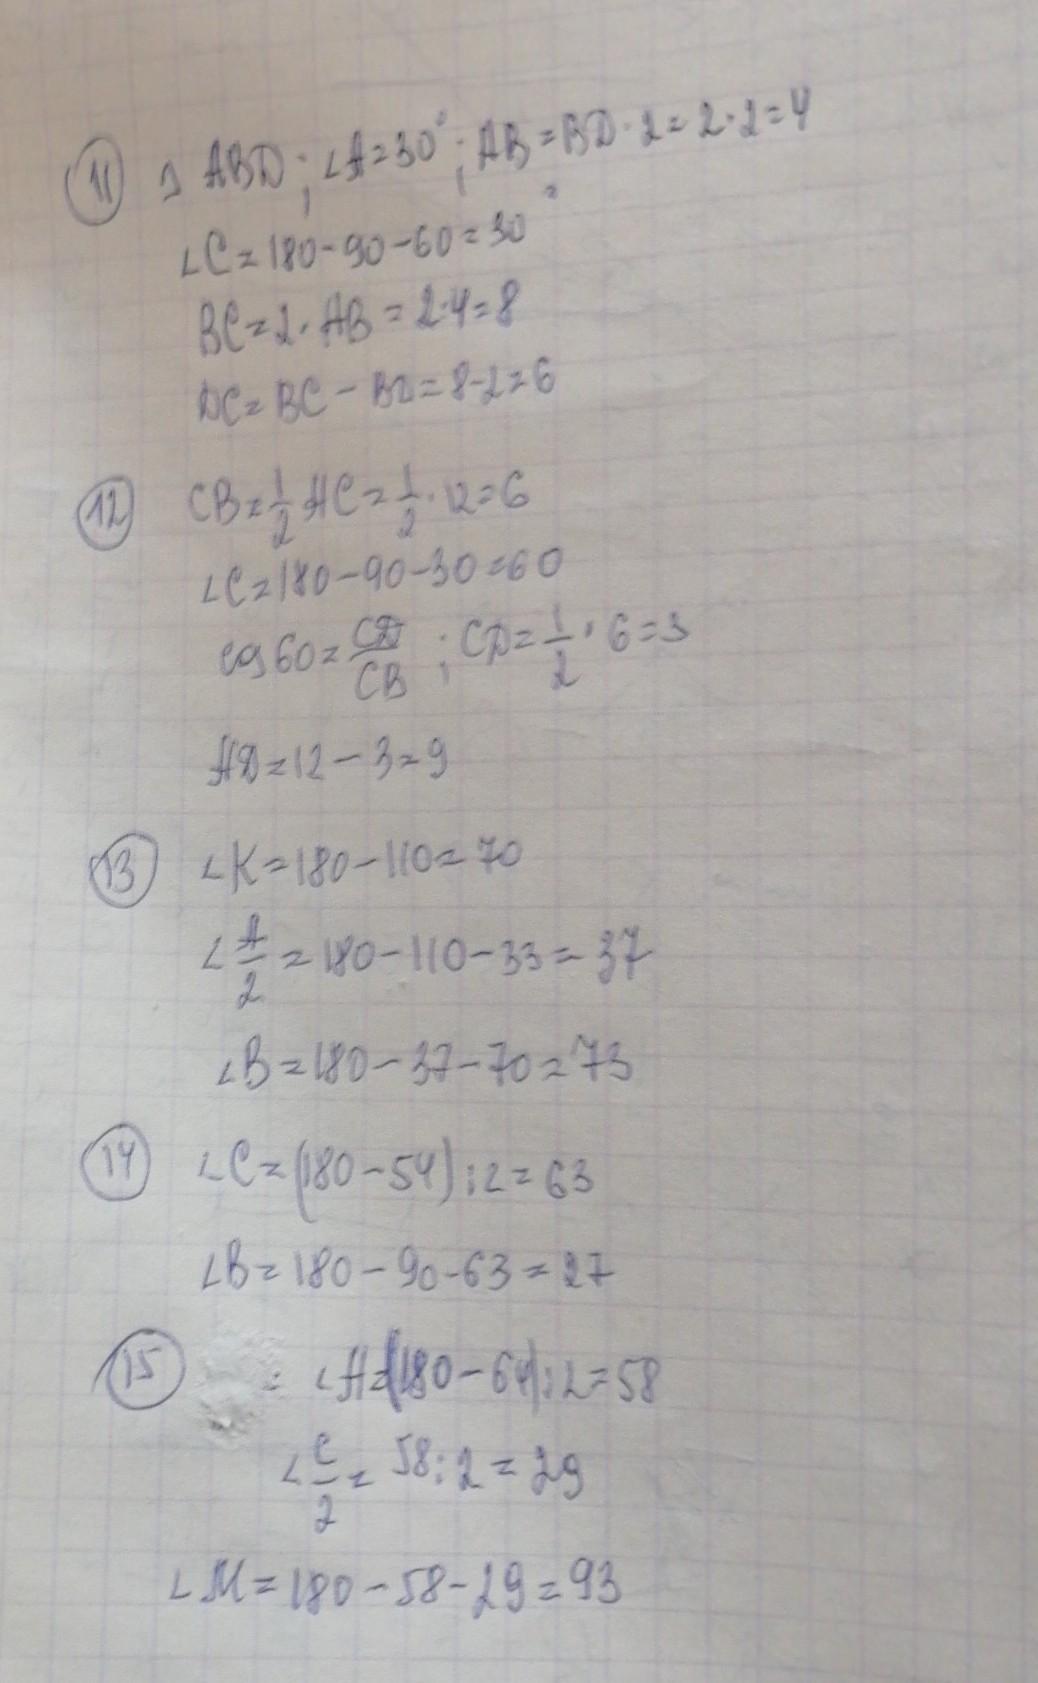 11 △ ABD; ∠A=30°; AB=BD·2=2·2=4
∠C=180-90-60=30
BC=2·AB=2·4=8
DC=BC-BD=8-2=6
12 CB=1/2 AC=1/2·12=6
∠C=180-90-30=60
cos60=CD/CB; CD=1/2·6=3
AD=12-3=9
13 ∠K=180-110=70
∠A/2=180-110-33=37
∠B=180-37-70=73
14 ∠C=(180-54):2=63
∠B=180-90-63=27
15 ∠A=(180-64):2=58
∠C/2=58:2=29
∠M=180-58-29=93